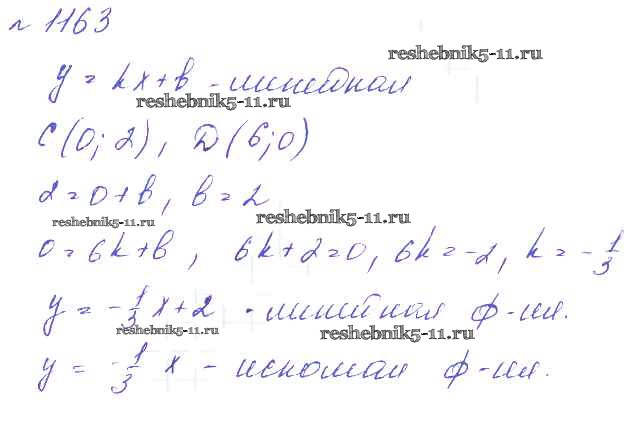 № 1163
reshebnik5-11.ru
y = kx + b - линейная
reshebnik5-11.ru
C(0; 2), D(6; 0)
2 = 0 + b, b = 2
reshebnik5-11.ru reshebnik5-11.ru
0 = 6k + b, 6k + 2 = 0, 6k = -2, k = -1/3
y = -1/3 x + 2 - линейная ф-ия.
reshebnik5-11.ru reshebnik5-11.ru
y = -1/3 x - искомая ф-ия.